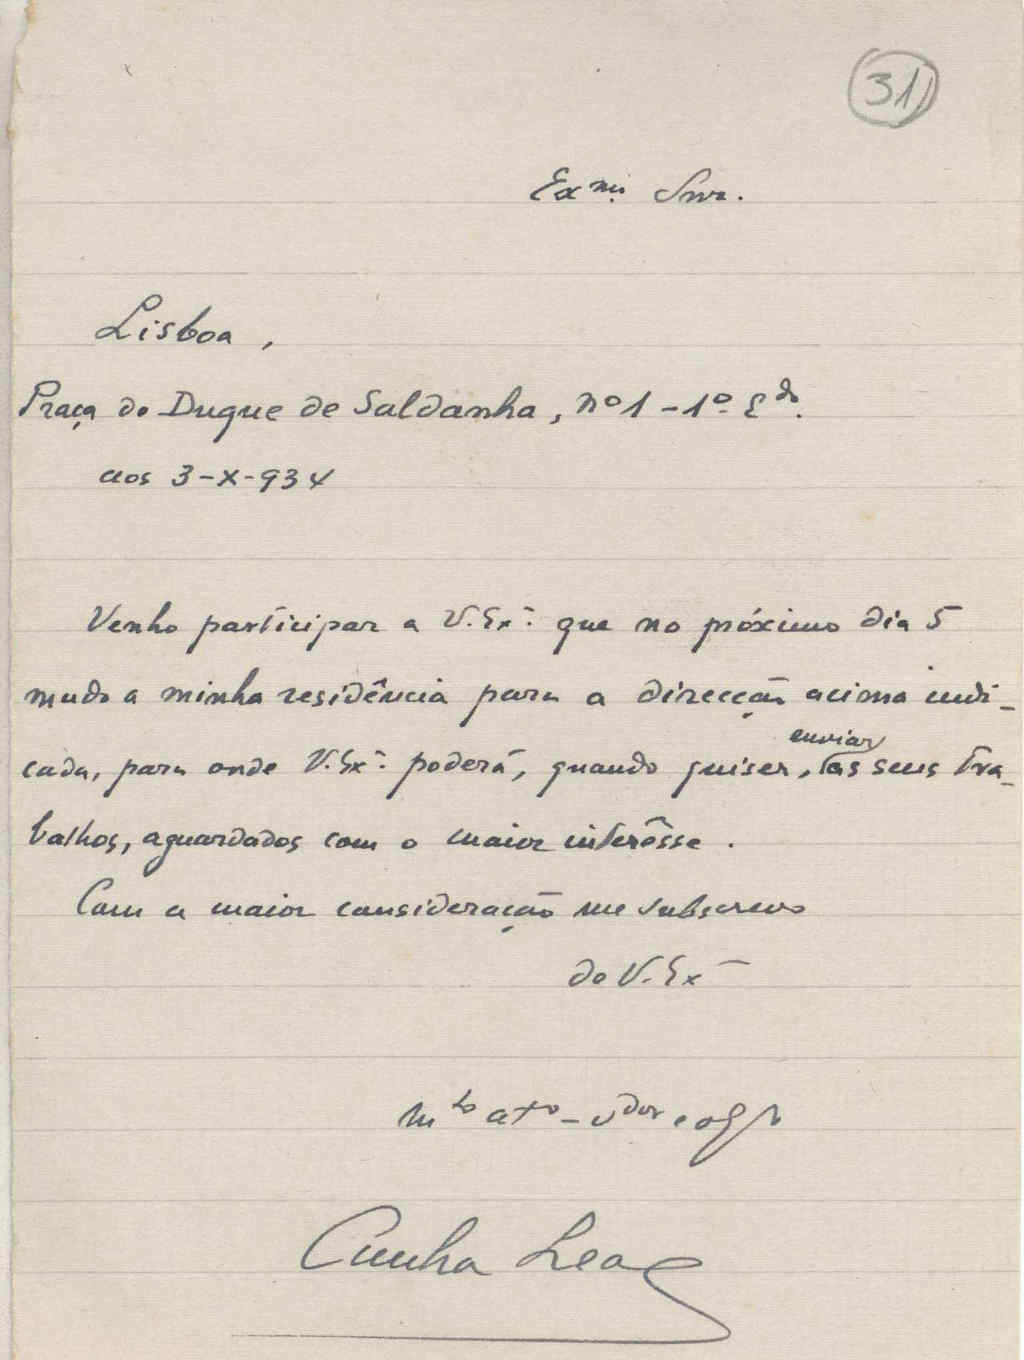 31
Exmº. Snr.
Lisboa,
Praça do Duque de Saldanha, nº 1 - 1º. Edº.
aos 3-X-934
Venho participar a V. Exª. que no próximo dia 5
mudo a minha residência para a direcção acima indi-
cada, para onde V. Exª. poderá, quando quiser,
enviar
os seus tra-
balhos, aguardados com o maior interêsse.
Com a maior consideração me subscrevo
de V. Exª
mto atº - vdor e
Cunha Leal